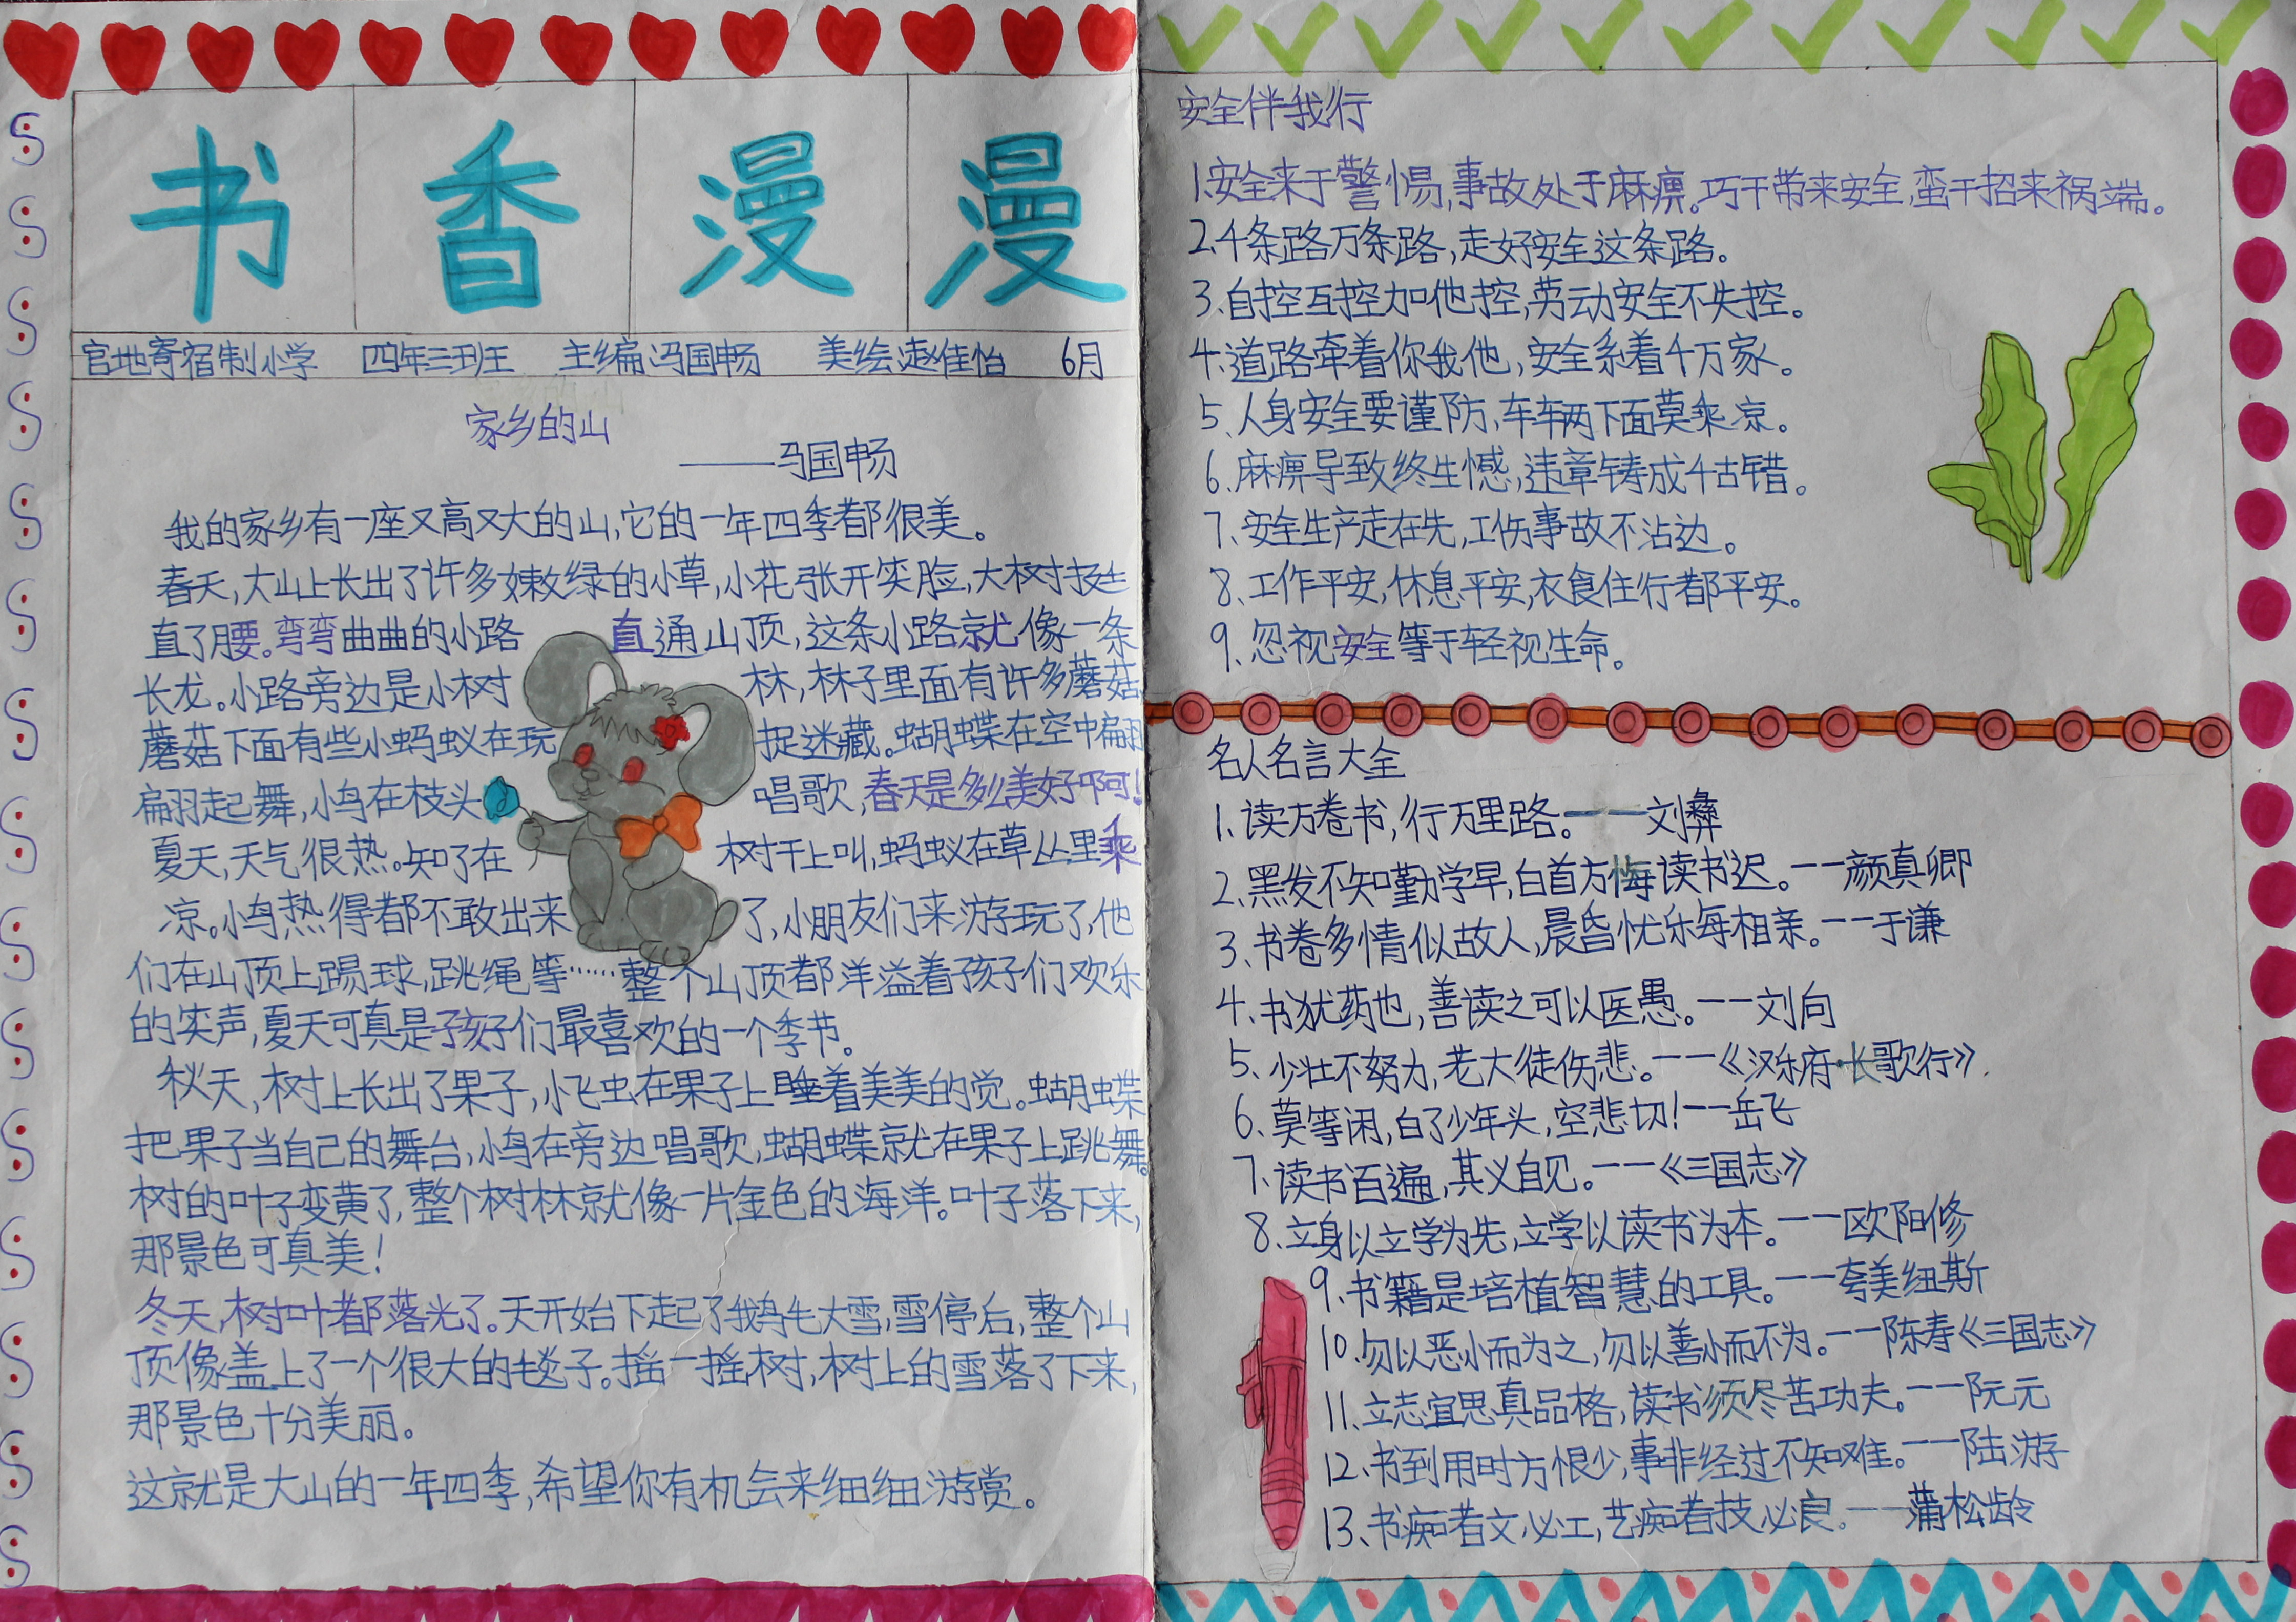 书香漫漫
官地寄宿制小学 四年三班 主编冯国畅 美绘赵佳怡 6月
家乡的山
——马国畅
我的家乡有一座又高又大的山,它的一年四季都很美。
春天,大山上长出了许多嫩绿的小草,小花张开笑脸,大树挺
直了腰。弯弯曲曲的小路直通山顶,这条小路就像一条
长龙。小路旁边是小树林,林子里面有许多蘑菇。
蘑菇下面有些小蚂蚁在玩捉迷藏。蝴蝶在空中翩翩
翩起舞,小鸟在枝头唱歌,春天是多么美好啊!
夏天,天气很热。知了在树干上叫,蚂蚁在草丛里乘
凉。小鸟热得都不敢出来了,小朋友们来游玩了,他
们在山顶上踢球,跳绳等……整个山顶都洋溢着孩子们欢乐
的笑声,夏天可真是孩子们最喜欢的一个季节。
秋天,树上长出了果子,小飞虫在果子上睡着美美的觉。蝴蝶
把果子当自己的舞台,小鸟在旁边唱歌,蝴蝶就在果子上跳舞。
树的叶子变黄了,整个树林就像一片金色的海洋。叶子落下来,
那景色可真美!
冬天,树叶都落光了。天开始下起了鹅毛大雪,雪停后,整个山
顶像盖上了一个很大的毯子。摇一摇树,树上的雪落了下来,
那景色十分美丽。
这就是大山的一年四季,希望你有机会来细细游赏。
安全伴我行
1.安全来于警惕,事故处于麻痹。巧干带来安全,蛮干招来祸端。
2、千条路万条路,走好安全这条路。
3、自控互控加他控,劳动安全不失控。
4、道路牵着你我他,安全系着千万家。
5、人身安全要谨防,车车两下面莫乘凉。
6、麻痹导致终生憾,违章铸成千古错。
7、安全生产走在先,工伤事故不沾边。
8、工作平安,休息平安,衣食住行都平安。
9、忽视安全等于轻视生命。
名人名言大全
1、读万卷书,行万里路。——刘彝
2、黑发不知勤学早,白首方悔读书迟。——颜真卿
3、书卷多情似故人,晨昏忧乐每相亲。——于谦
4、书犹药也,善读之可以医愚。——刘向
5、少壮不努力,老大徒伤悲。——《汉乐府·长歌行》.
6、莫等闲,白了少年头,空悲切!——岳飞
7、读书百遍,其义自见。——《三国志》
8、立身以立学为先,立学以读书为本。——欧阳修
9、书籍是培植智慧的工具。——夸美纽斯
10、勿以恶小而为之,勿以善小而不为。——陈寿《三国志》
11、立志宜思真品格,读书须尽苦功夫。——阮元
12、书到用时方恨少,事非经过不知难。——陆游
13、书痴者文必工,艺痴者技必良。——蒲松龄